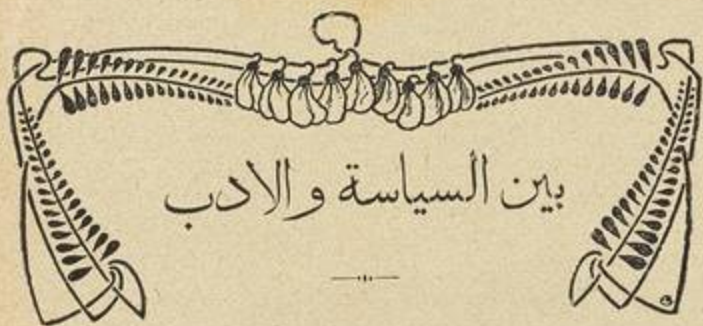 بين السياسة والادب